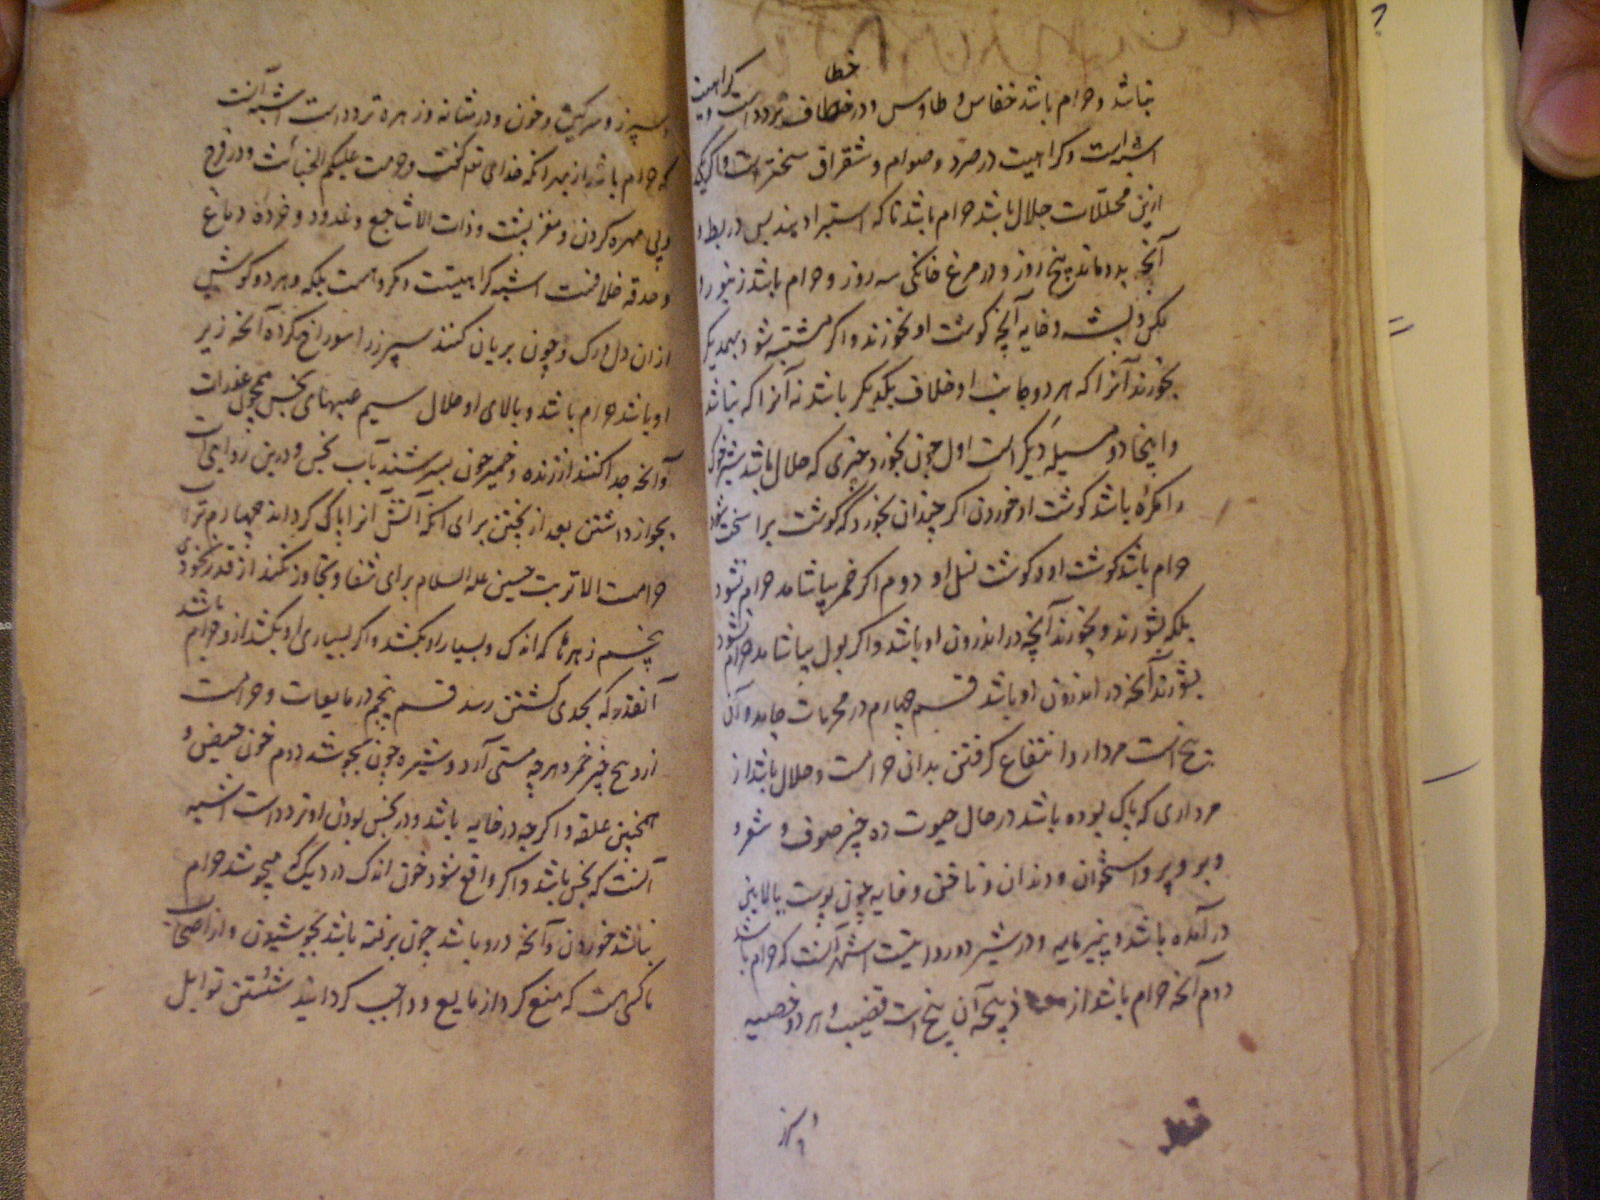 خطا
نباشد و حرام باشد خفاش و طاوس و در خطاف تردد است و کراهیت
اشبه است و کراهیت در صرد و صوام و شقراق سختر است و اگر یکی
ازین محللات جلال باشد حرام باشد تا که استبرا دهند پس در بط و
آنچه بدو ماند پنج روز و در مرغ خانگی سه روز و حرام باشد زنبور و
مکس و پشه و خایه آنچه گوشت او نخورند و اگر مشتبه شود بهمدیگر
بخورند آنرا که هر دو جانب او خلاف یکدیگر باشد نه آنرا که نباشد
و اینجا دو مسیله دیگر است اول چون بخورد چیزی که حلال باشد شیر خوک
مکروه باشد گوشت او خوردن اگر چندان بخورد که گوشت برا سخت شود
حرام باشد گوشت او و گوشت نسل او دوم اگر خمر بیاشامد حرام نشود
بلکه بشورند و بخورند آنچه در اندرون او باشد و اگر بول بیاشامد حرام نشود
بشورند آنچه در اندرون او باشد قسم چهارم در محرمات جامد و آن
پنج است مردار و انتفاع گرفتن بدان حرامست و حلال باشد از
مرداری که پاک بوده باشد در حال حیوت ده چیز صوف و شعر و
وبر و پر و استخوان و دندان و ناخن و خایه چون پوست بالایین
در آمده باشد و پنیر مایه و در شیر دو روایتست اشهر آنست که حرام باشد
دوم آنچه حرام باشد از ذبیحه آن پنج است قضیب و هر دو خصیه
و سپرز
و سپرز و سرکین و خون و در مثانه و زهره تردد است اشبه آنست
که حرام باشد از بهر آنکه خدای تع گفت و حرمت علیکم الخبائث و در فرج
و پی مهره کردن و مغز پشت و ذات الاشاجع و غدود و خرزه دماغ
و حدقه خلافست اشبه کراهیتست و مکروهست بلکه و هر دو گوش
از ان دل و رک و چون بریان کنند سپرز را سوراخ کرده آنچه زیر
او باشد حرام باشد و بالای او حلال سیم عینهای نجس همچون عذرات
و آنچه جدا کنند از زنده و خمیر چون بسرشند بآب نجس و درین روایتی است
بجواز داشتن بعد از پختن برای آنکه آتش آنرا پاک کرداند چهارم تراب
حرامست الا تربت حسین علیه السلام برای شفا و تجاوز نکنند از قدر نخودی
پنجم زهرها که اندک و بسیار او بکشد و اگر بسیاری او بکشد از و حرام باشد
آنقدر که بحدی کشتن رسد قسم پنجم در مایعات و حرامست
از و پنج چیز خمر و هر چه مستی آرد و شیره چون بجوشد دوم خون حیض و
همچنین علقه و اگر چه در خایه باشد و در نجس بودن او تردد است اشبه
آنست که نجس باشد و اگر واقع شود خون اندک در دیک که میجوشد حرام
نباشد خوردن و آنچه درو باشد چون برفته باشد بجوشیدن و از اصحاب
ما کسی هست که منع کرد از مایع و واجب کردانید شستن توابل